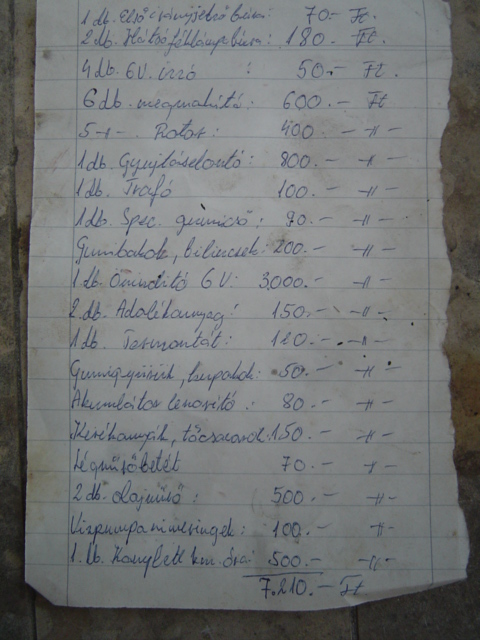 1 db. Első irányjelző búra: 70.- Ft.
2 db. Hátsó féklámpa búra: 180. Ft.
4 db. 6V. izzó : 50.- Ft.
6 db. : 600.- Ft
5 -"- Rotor: 400.- -"-
1 db. Gyujtáselosztó: 800.- -"-
1 db. Trafó 100.- -"-
1 db. Spec. gumicső: 70.- -"-
Gumibakok, bilincsek: 200.- -"-
1 db. Önindító 6V: 3000.- -"-
2. db. Adalékanyag: 150.- -"-
1 db. Termosztát: 120.- -"-
Gumigyűrűk, kupakok: 50.- -"-
Akumlátor leszorító: 80.- -"-
Kerékanyák, tőcsavarok: 150.- -"-
Légszűrőbetét 70.- -"-
2 db. olajszűrő: 500.- -"-
Vizpumpa szimeringek: 100.- -"-
1. db. Komplett km. óra: 500.- -"-
7.210.- Ft